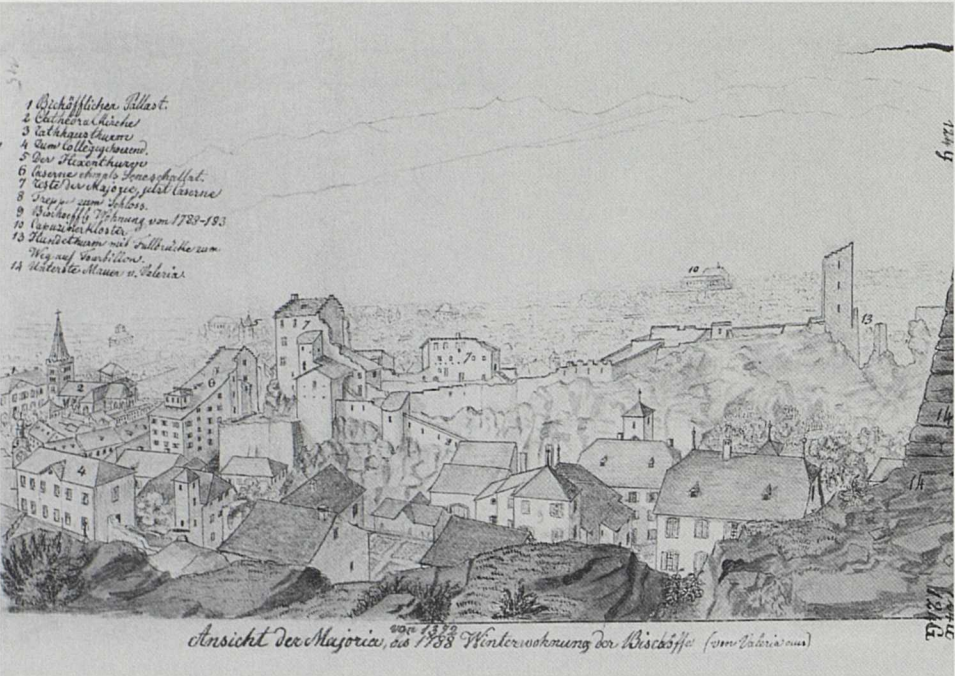 1 Bischöfflicher Pallast.
2 Cathedralkirche
3 Rathhausthurm
4 Zum Collegg
5 Der Hexenthurm
6 Caserne ehmals
7 Reste der Majorie, jetzt Caserne
8 Treppe zum Schloss.
9 Bischoeffl. Wohnung von 1788-183
10 Capuzinerkloster
13 Hundethurm mit Fallbrücke zum
Weg auf Tourbillon.
14 Unterste Mauer v. Valeria.
10
13
7
6
2
4
14
14
124 g
124G
Ansicht der Majoria, bis 1788 Winterwohnung der Bischöffe (von Valeria aus)